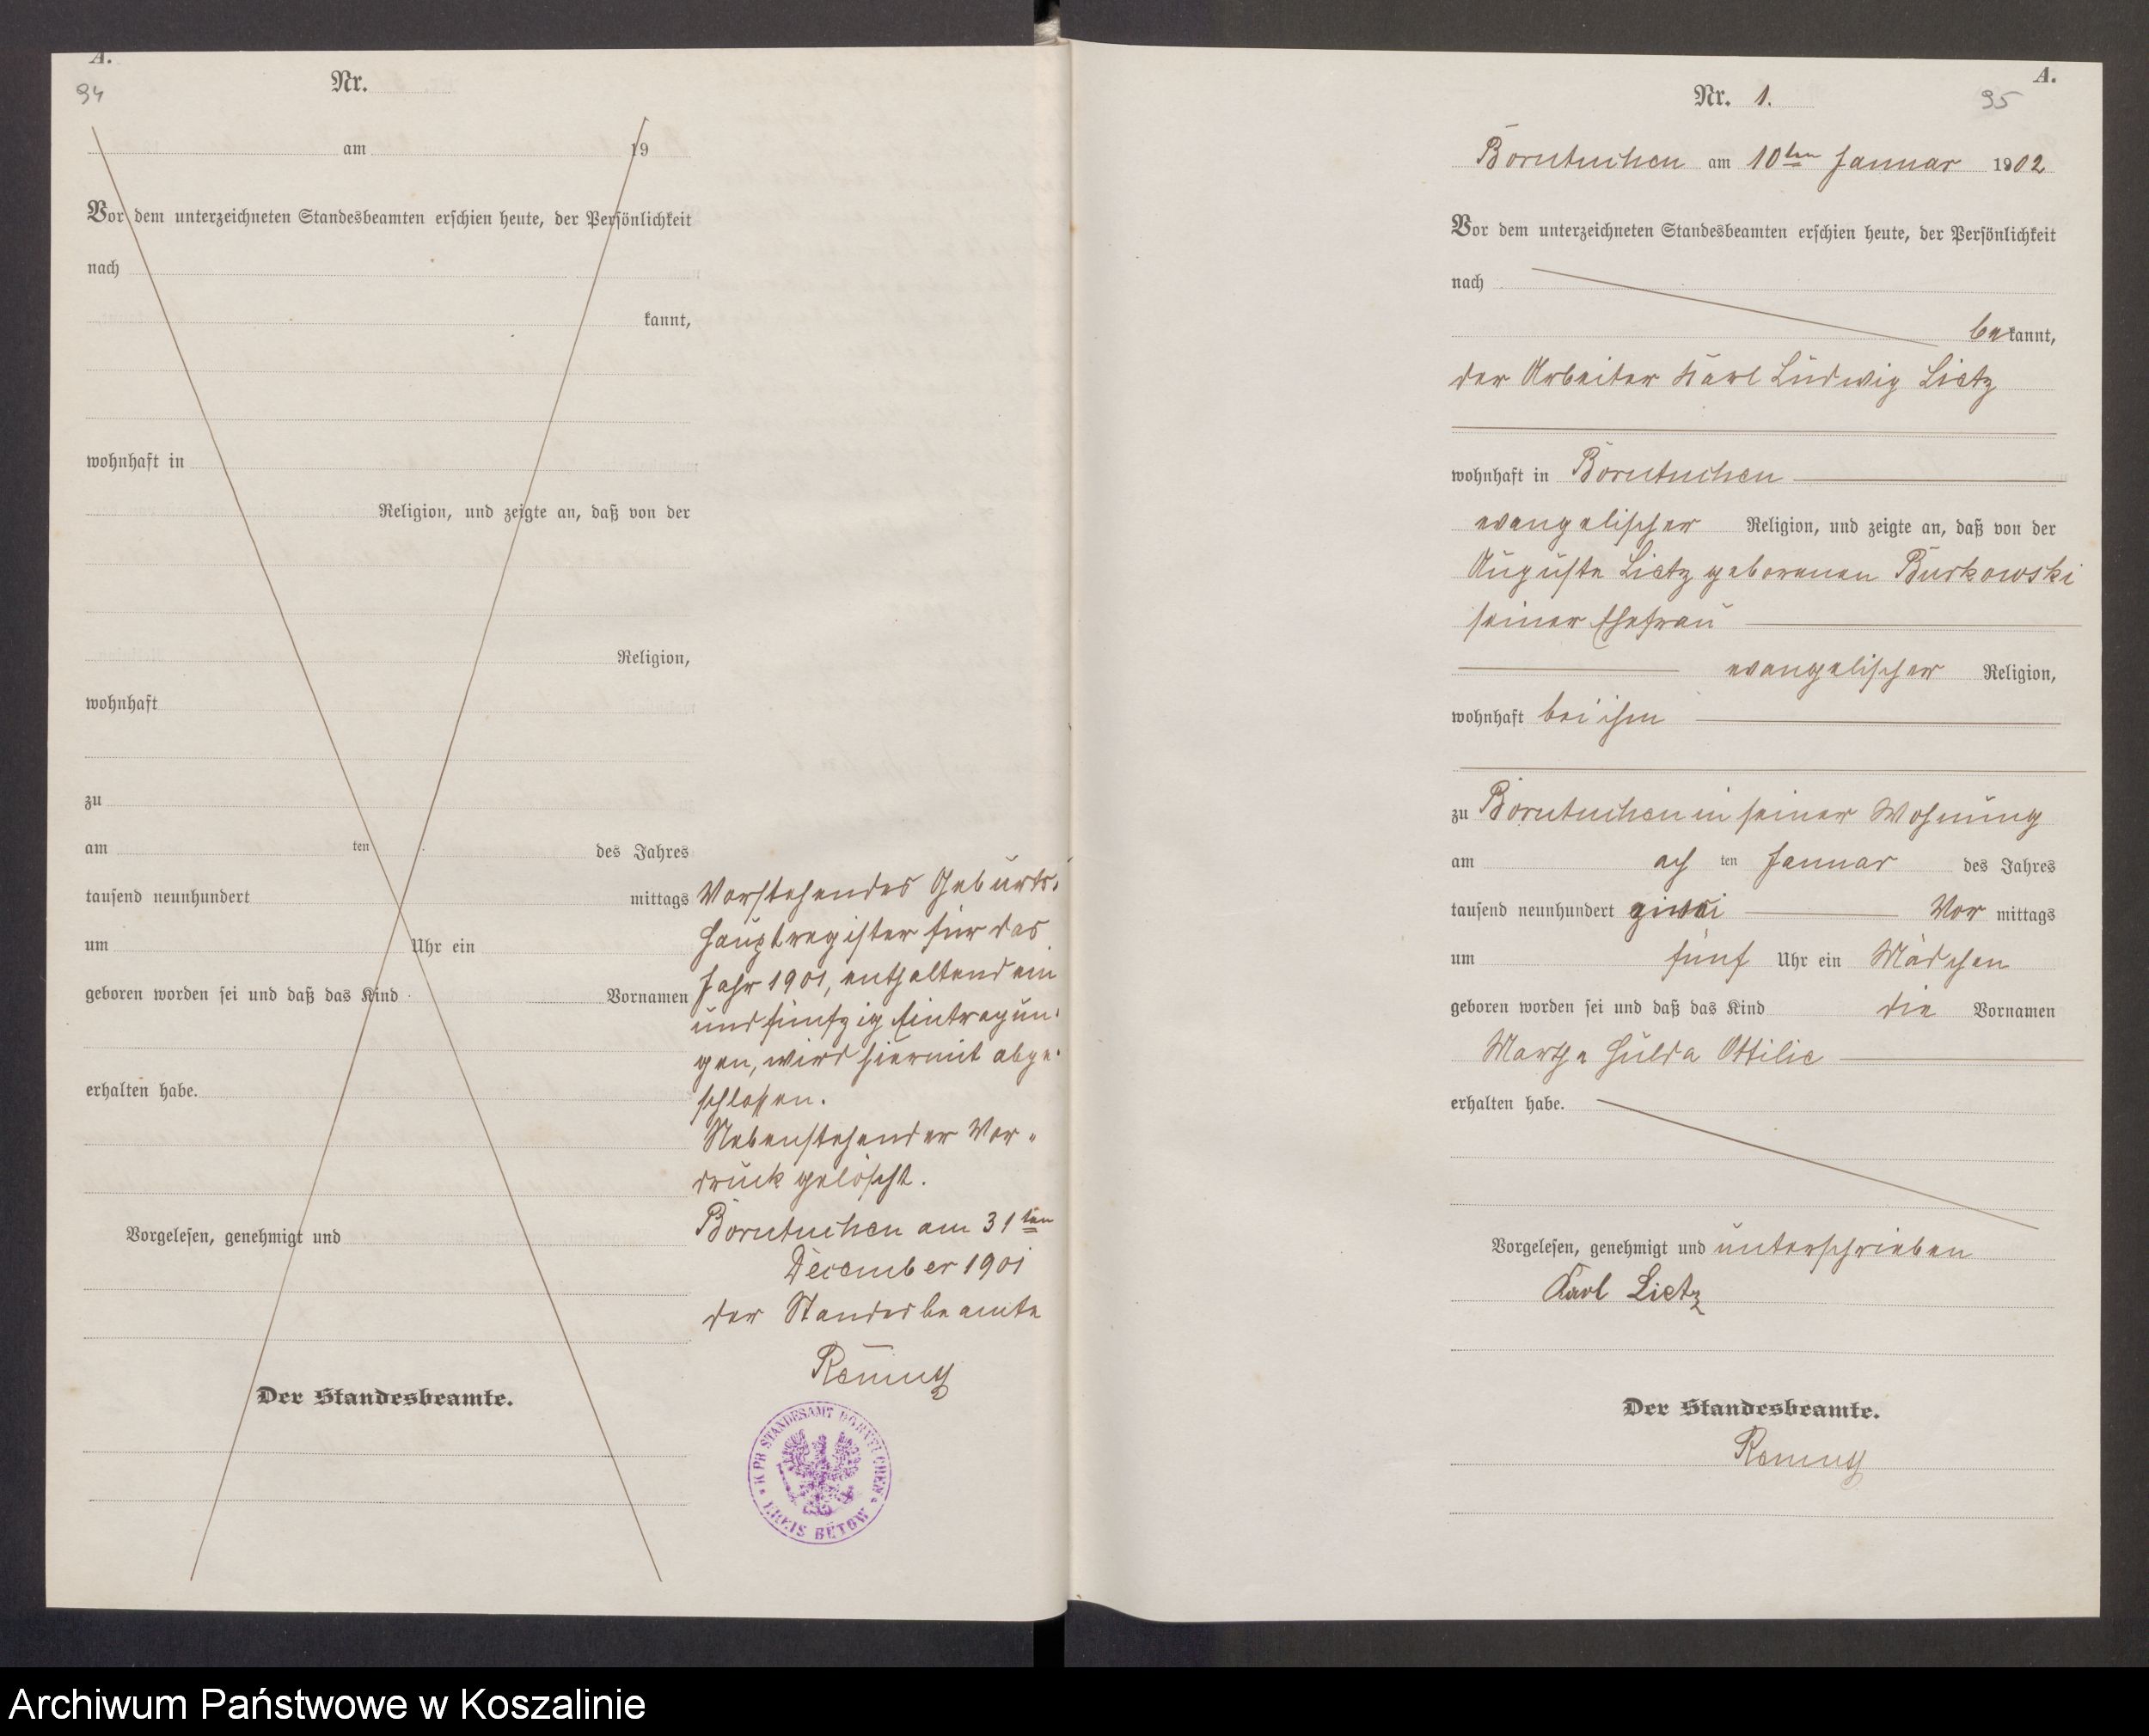 A.
94
Nr.
am 19
Vor dem unterzeichneten Standesbeamten erschien heute, der Persönlichkeit
nach
kannt,
wohnhaft in
Religion, und zeigte an, daß von der
Religion,
wohnhaft
zu
am ten des Jahres
tausend neunhundert mittags
um Uhr ein
geboren worden sei und daß das Kind Vornamen
erhalten habe.
Vorgelesen, genehmigt und
Der Standesbeamte.
Vorstehendes Geburts-
hauptregister für das
Jahr 1901, enthaltend ein
und fünfzig Eintragun-
gen, wird hiermit abge-
schlossen.
Nebenstehender Vor-
druck gelöscht.
Borntuchen am 31ten
December 1901
der Standesbeamte
K. PR. STANDESAMT BORNTUCHEN
KREIS BÜTOW
A.
95
Nr. 1.
Borntuchen am 10ten Januar 1902
Vor dem unterzeichneten Standesbeamten erschien heute, der Persönlichkeit
nach
bekannt,
der Arbeiter Karl Ludwig Lietz
wohnhaft in Borntuchen
evangelischer Religion, und zeigte an, daß von der
Auguste Lietz geborenen Burkowski
seiner Ehefrau
evangelischer Religion,
wohnhaft bei ihm
zu Borntuchen in seiner Wohnung
am ach ten Januar des Jahres
tausend neunhundert zwei Vor mittags
um fünf Uhr ein Mädchen
geboren worden sei und daß das Kind die Vornamen
Martha Hulda Ottilie
erhalten habe.
Vorgelesen, genehmigt und unterschrieben
Karl Lietz
Der Standesbeamte.
Archiwum Państwowe w Koszalinie